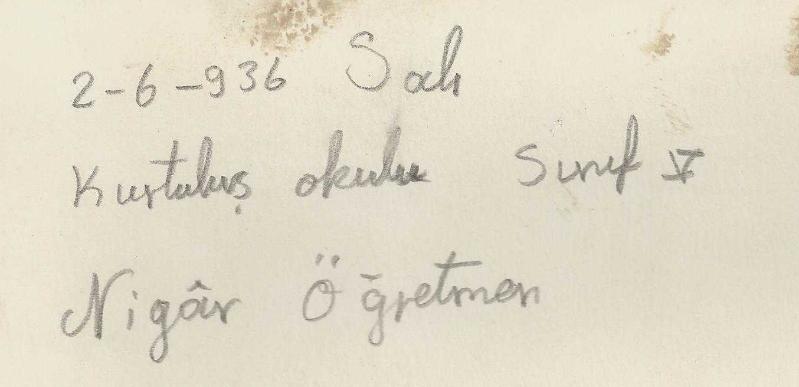 2-6-936 Salı
Kurtuluş okulu Sınıf V
Nigâr Öğretmen